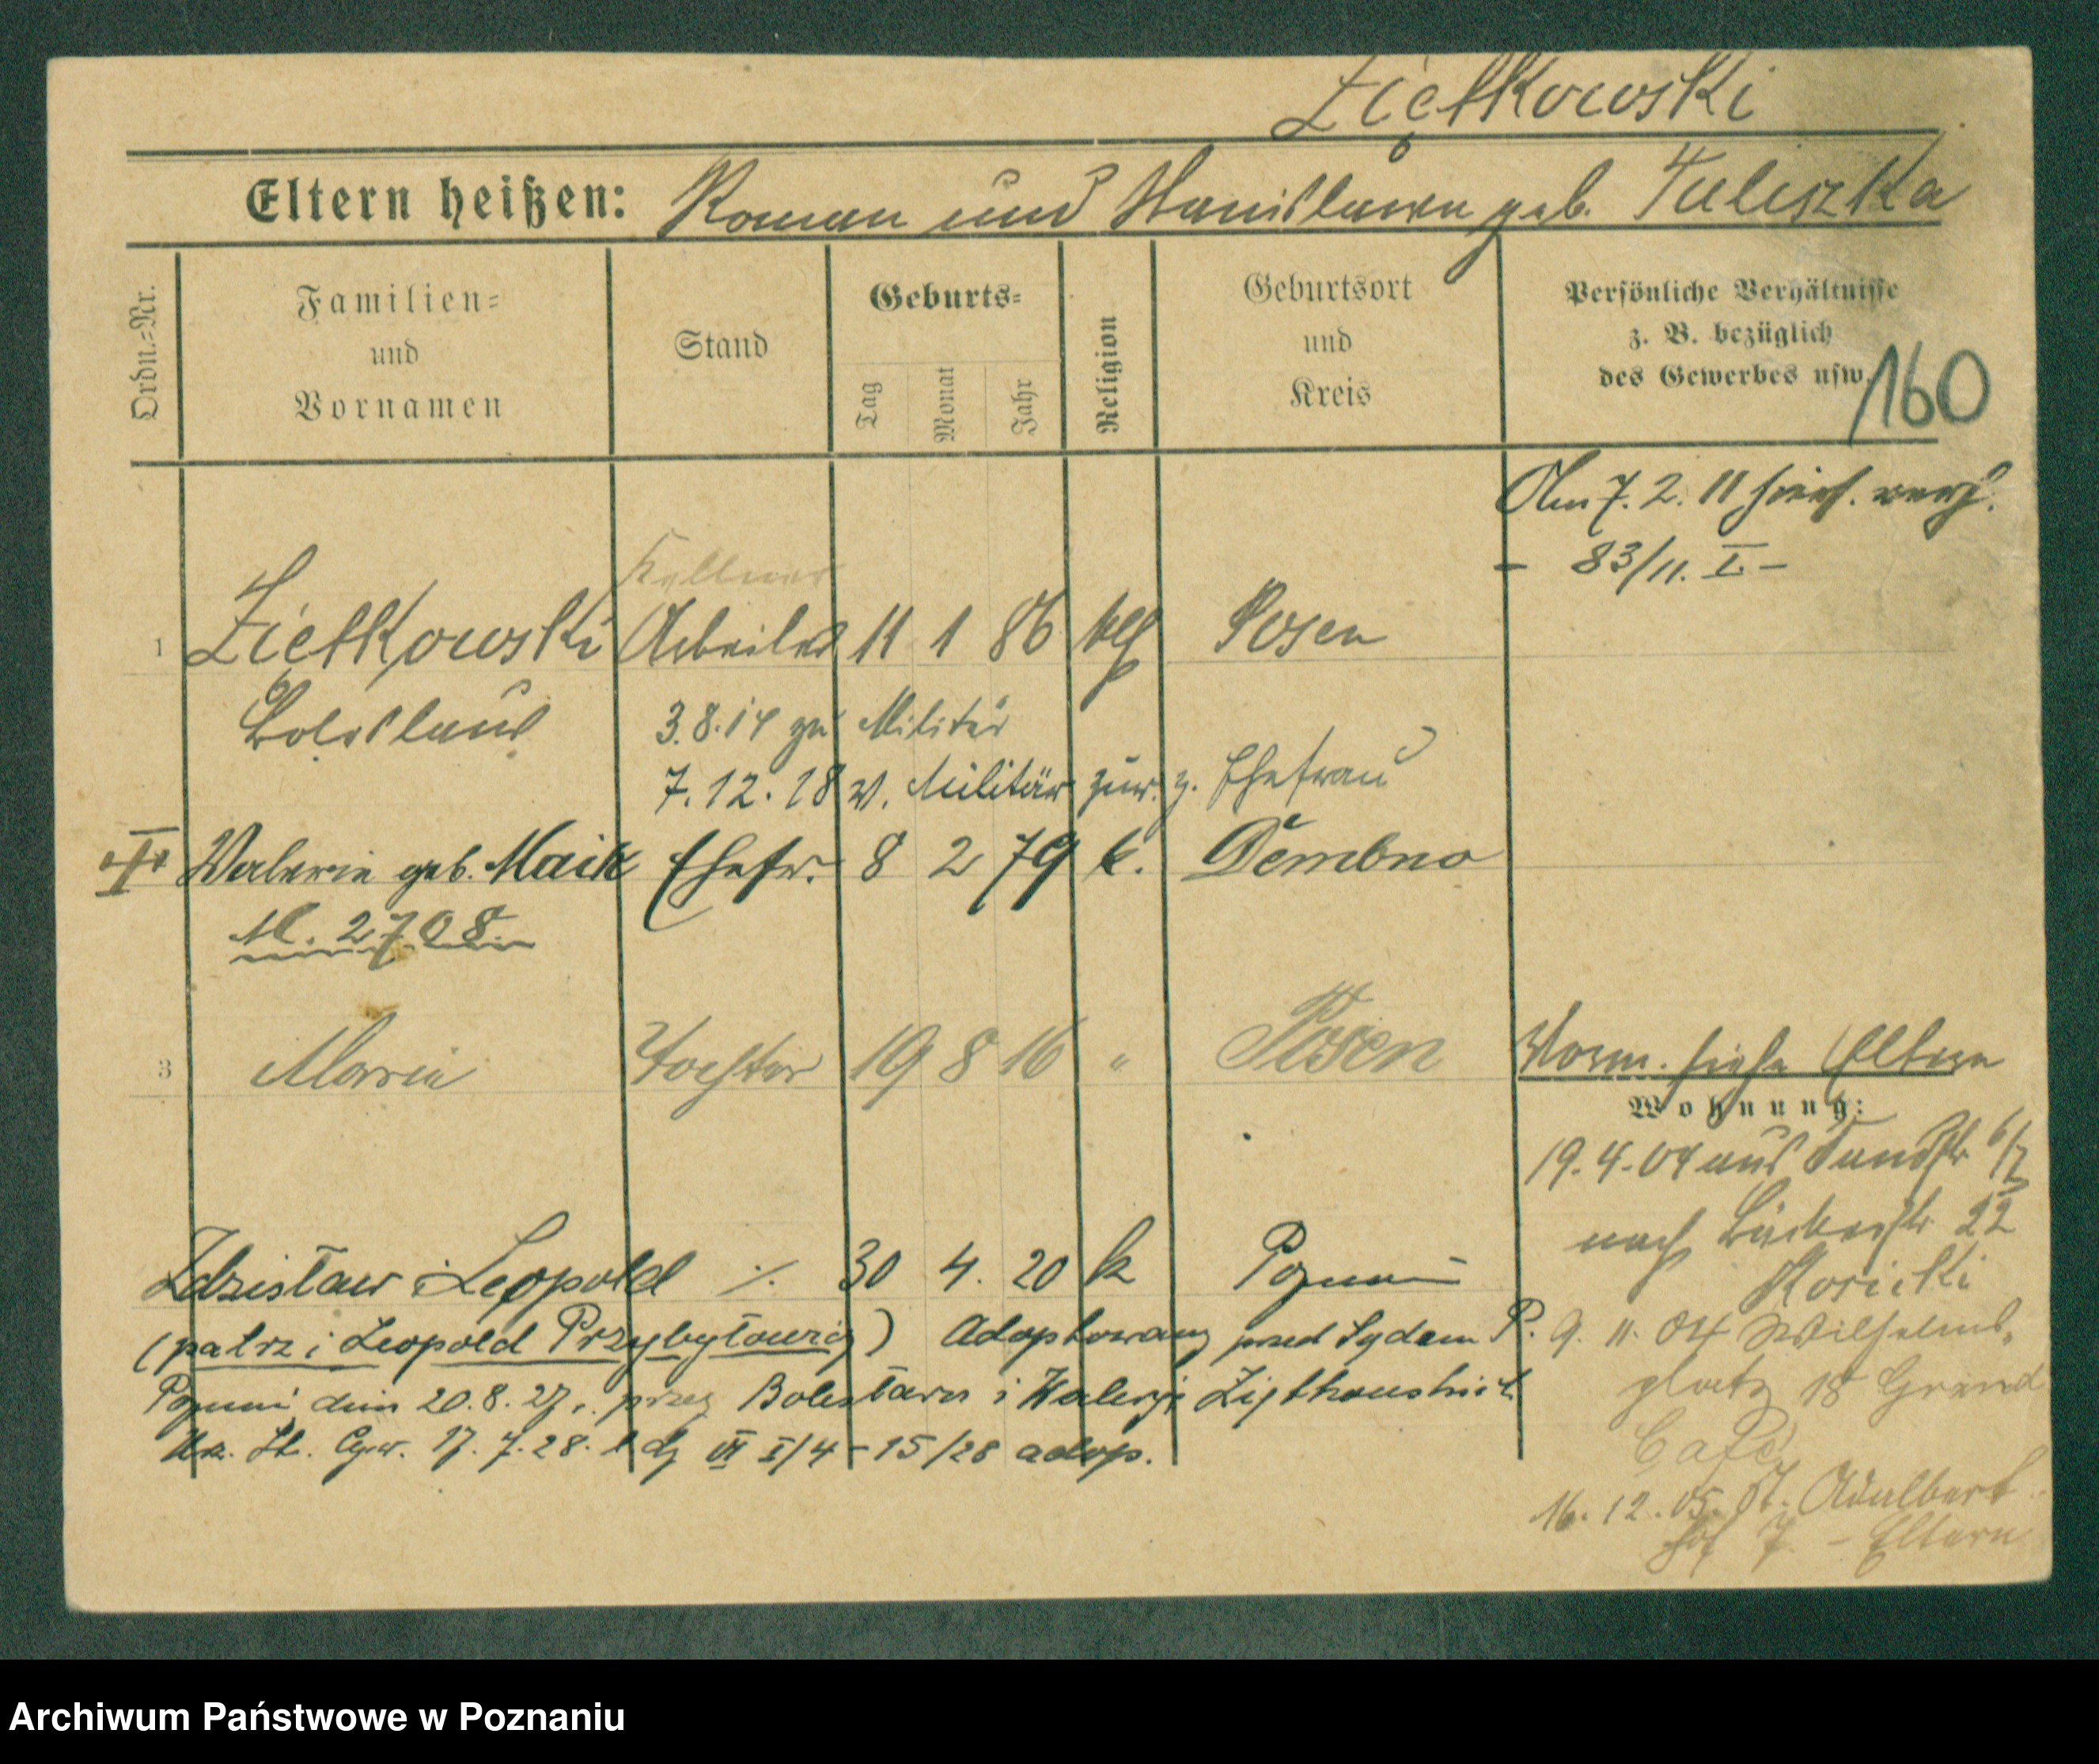 Ziętkowski
Eltern heißen: Roman und Stanislawa geb. Tuliszka
Ordn.=Nr.
Familien=
und
Vornamen
Stand
Geburts=
Tag
Monat
Jahr
Religion
Geburtsort
und
Kreis
Persönliche Verhältnisse
z. B. bezüglich
des Gewerbes usw.
160
Am 7. 2. 11 hiers. verh.
- 83/11. I -
Kellner
1 Ziętkowski Arbeiter 11 1 86 kth Posen
Boleslaus 3. 8. 14 zu Militär
7. 12. 18 v. Militär zur. z. Ehefrau
II Valerie geb. Maik Ehefr. 8 2 79 k. Dembno
M. 2708
3 Maria Tochter 19 8 16 " Posen
Vorm. siehe Eltern
Wohnung:
19. 4. 04 aus Sandstr 6/7
nach Bäckerstr 22
Kosicki
9. 11. 04 Wilhelms-
platz 18 Grand
Café
16. 12. 05. St. Adalbert
hof 7. - Eltern
Zdzisław Leopold ./. 30 4. 20 k Poznań
(patrz: Leopold Przybyłowicz) Adoptowany przed Sądem P.
Poznań dnia 20. 8. 27. przez Bolesława i Walerję Ziętkowskich
Urz. St. Cyw. 17. 7. 28. VI I/4-15/28 adop.
Archiwum Państwowe w Poznaniu